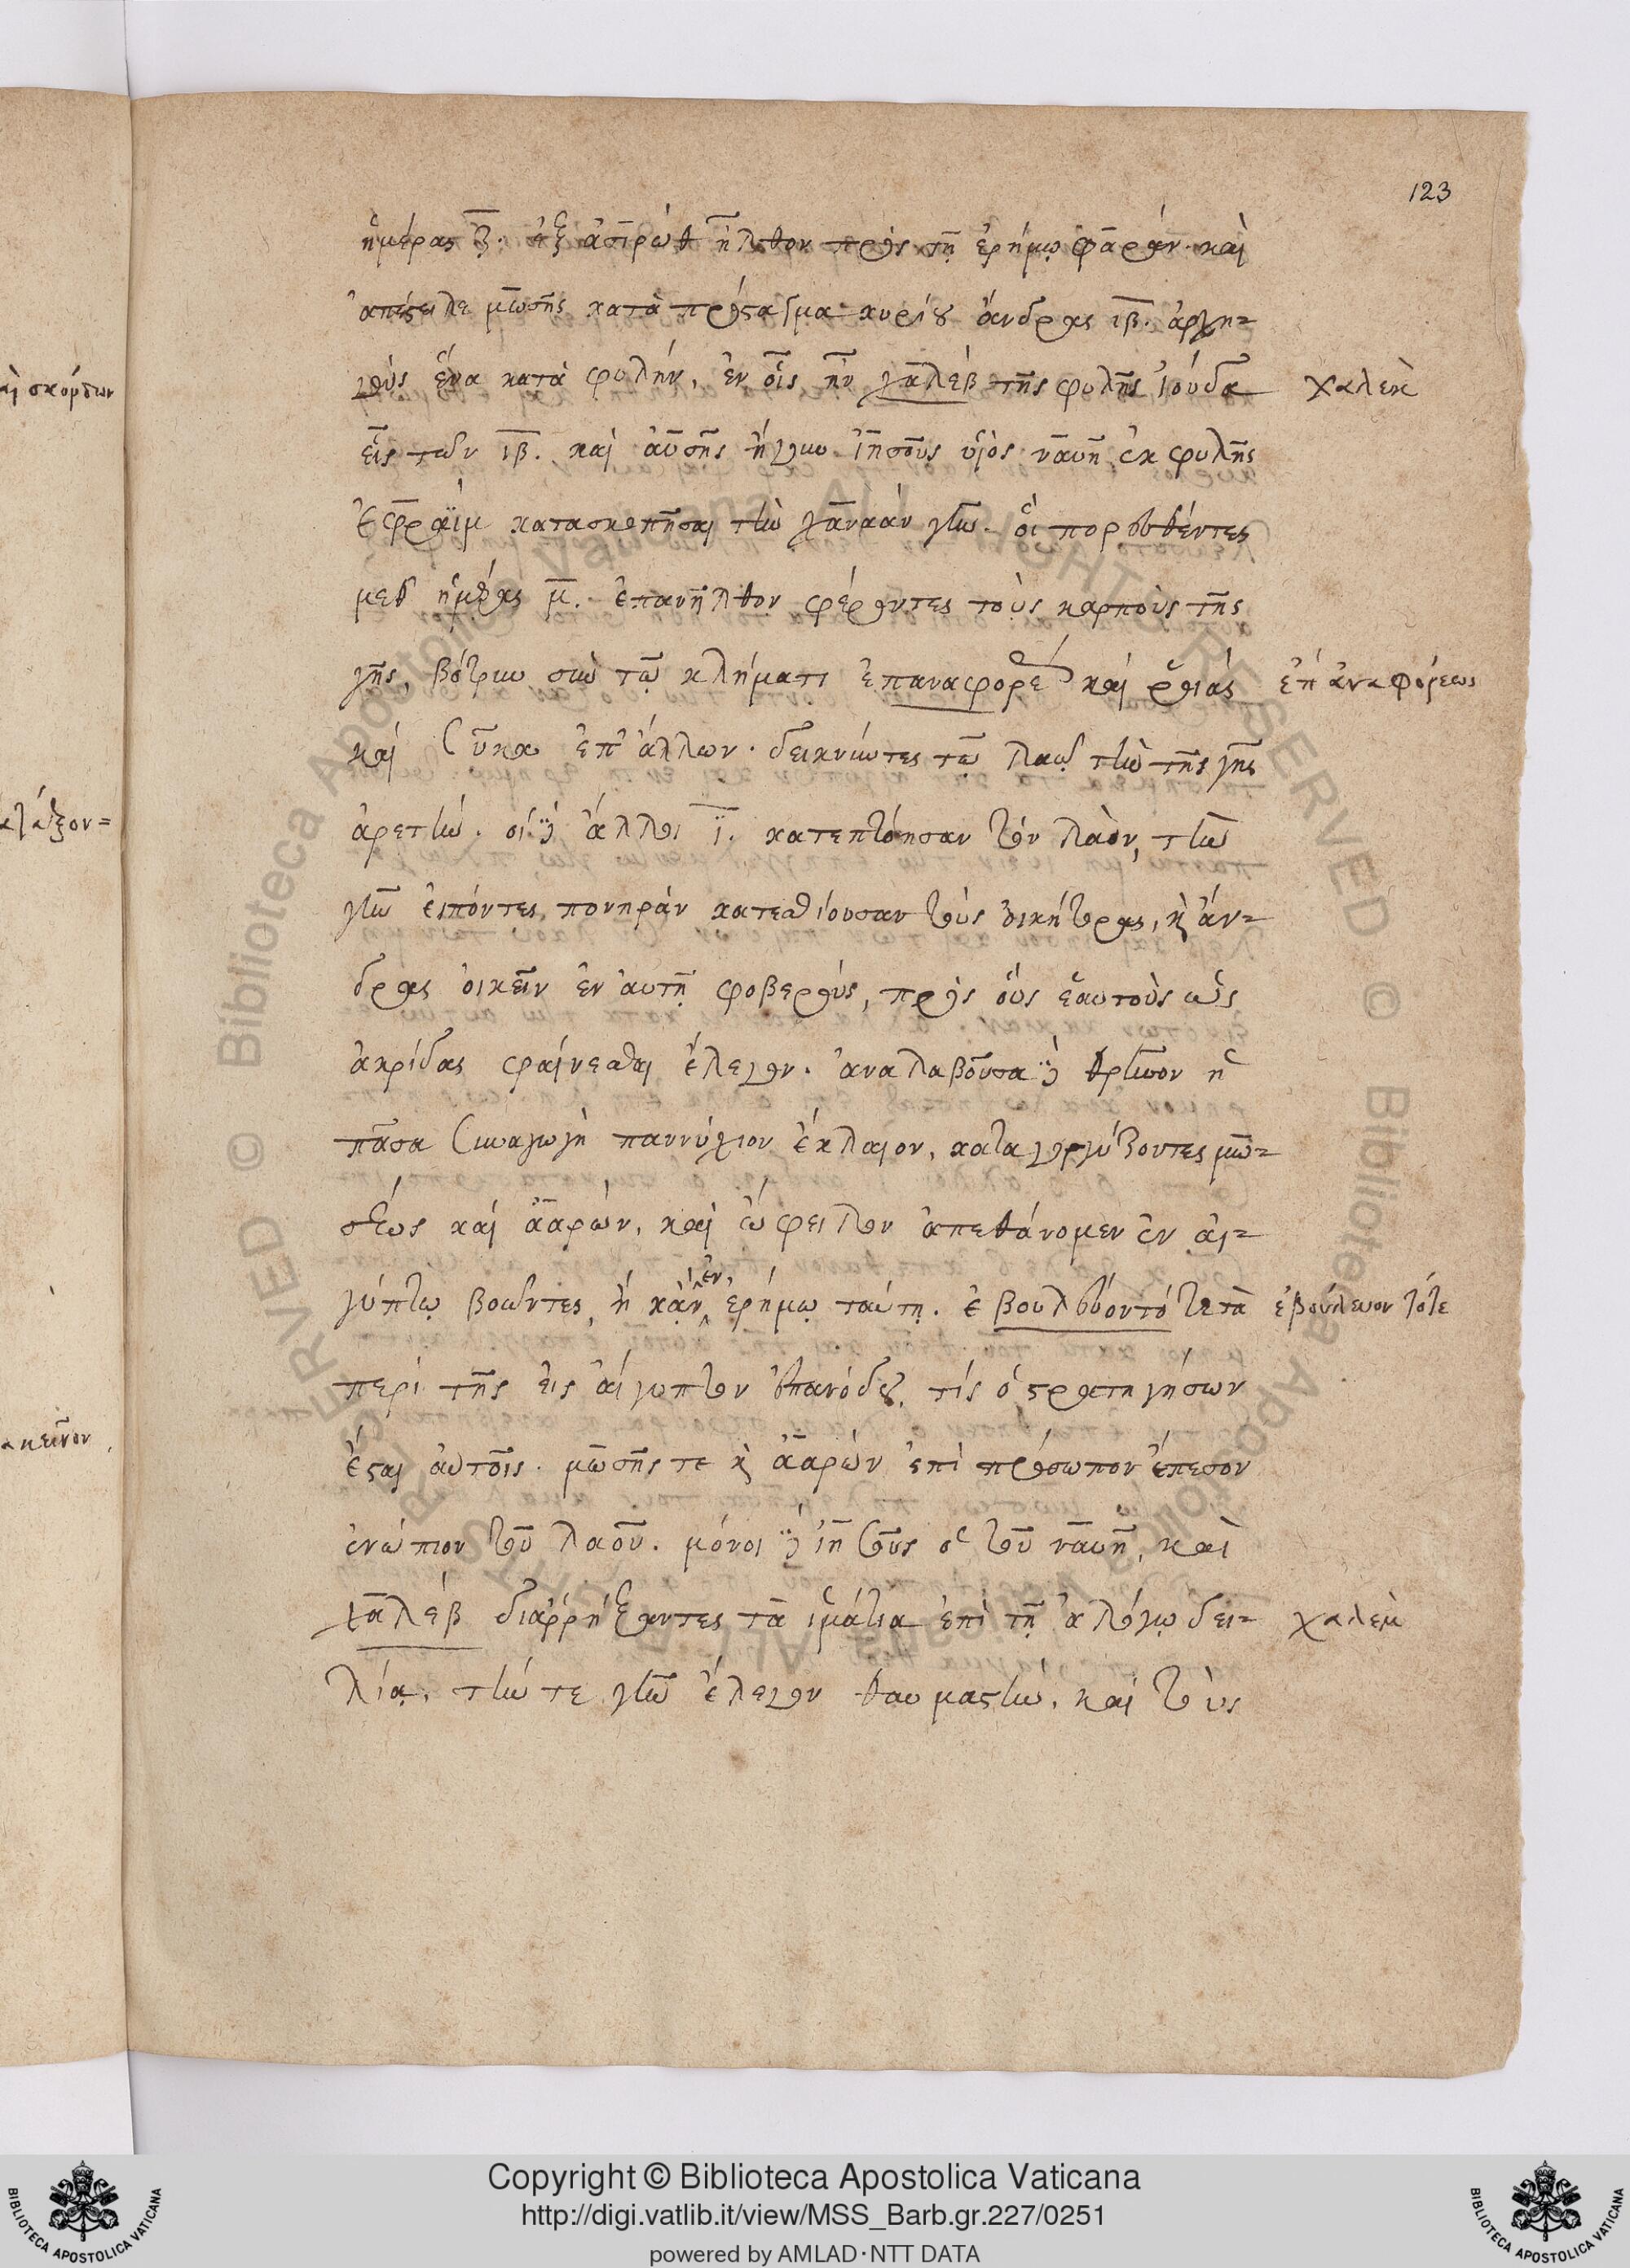 123
ἡμέρας ζ. ἐξ ἀσηρὼθ ἦλθον πρὸς τῇ ἐρήμῳ φαράν. καὶ
ἀπέστειλε μωσῆς κατὰ πρόσταγμα κυρίου ἄνδρας ιβ. ἀρχη-
γοὺς ἕνα κατὰ φυλήν, ἐν οἷς ἦν χαλὲβ τῆς φυλῆς ἰούδα
χαλὲκ
εἷς τῶν ιβ. καὶ αὐσῆς ἤγουν ἰησοῦς υἱὸς ναυῆ ἐκ φυλῆς
ἐφραῒμ κατασκοπῆσαι τὴν χαναὰν γῆν. οἳ πορευθέντες
μεθ' ἡμέρας μ. ἐπανῆλθον φέροντες τοὺς καρποὺς τῆς
γῆς, βότρυν σὺν τῷ κλήματι ἐπαναφορέ καὶ ῥοιάς
ἐπ' ἀναφόρεως
καὶ σῦκα ἐπ' ἄλλων. δεικνύντες τῷ λαῷ τὴν τῆς γῆς
ἀρετήν. οἱ δὲ ἄλλοι ι. κατεπτόησαν τὸν λαὸν, τὴν
γῆν εἰπόντες πονηρὰν κατεσθίουσαν τοὺς οἰκήτορας, κ ἄν-
δρας οἰκεῖν ἐν αὐτῇ φοβεροὺς, πρὸς οὓς ἑαυτοὺς ὡς
ἀκρίδας φαίνεσθαι ἔλεγον. ἀναλαβοῦσα δὲ θρῆνον ἡ
πᾶσα συναγωγὴ παννύχιον ἔκλαιον, καταγογγύζοντες μω-
σέως καὶ ἀαρών, καὶ ὤφειλον ἀπεθάνομεν ἐν αἰ-
γύπτῳ βοῶντες, ἢ κἀν ἐν ἐρήμῳ ταύτῃ. ἐβουλεύοντό
ἐβούλευον τότε
περὶ τῆς εἰς αἴγυπτον ἐπανόδου, τίς ὁ στρατηγήσων
ἔσται αὐτοῖς. μωσῆς τε κ ἀαρών ἐπὶ πρόσωπον ἔπεσον
ἐνώπιον τοῦ λαοῦ. μόνοι δὲ ἰησοῦς ὁ τοῦ ναυῆ, καὶ
χαλὲβ διαῤῥήξαντες τὰ ἱμάτια ἐπὶ τῇ ἀλόγῳ δει-
χαλὲκ
λίᾳ, τήν τε γῆν ἔλεγον θαυμαστήν, καὶ τοὺς
Copyright © Biblioteca Apostolica Vaticana
http://digi.vatlib.it/view/MSS_Barb.gr.227/0251
powered by AMLAD·NTT DATA
BIBLIOTECA APOSTOLICA VATICANA
BIBLIOTECA APOSTOLICA VATICANA